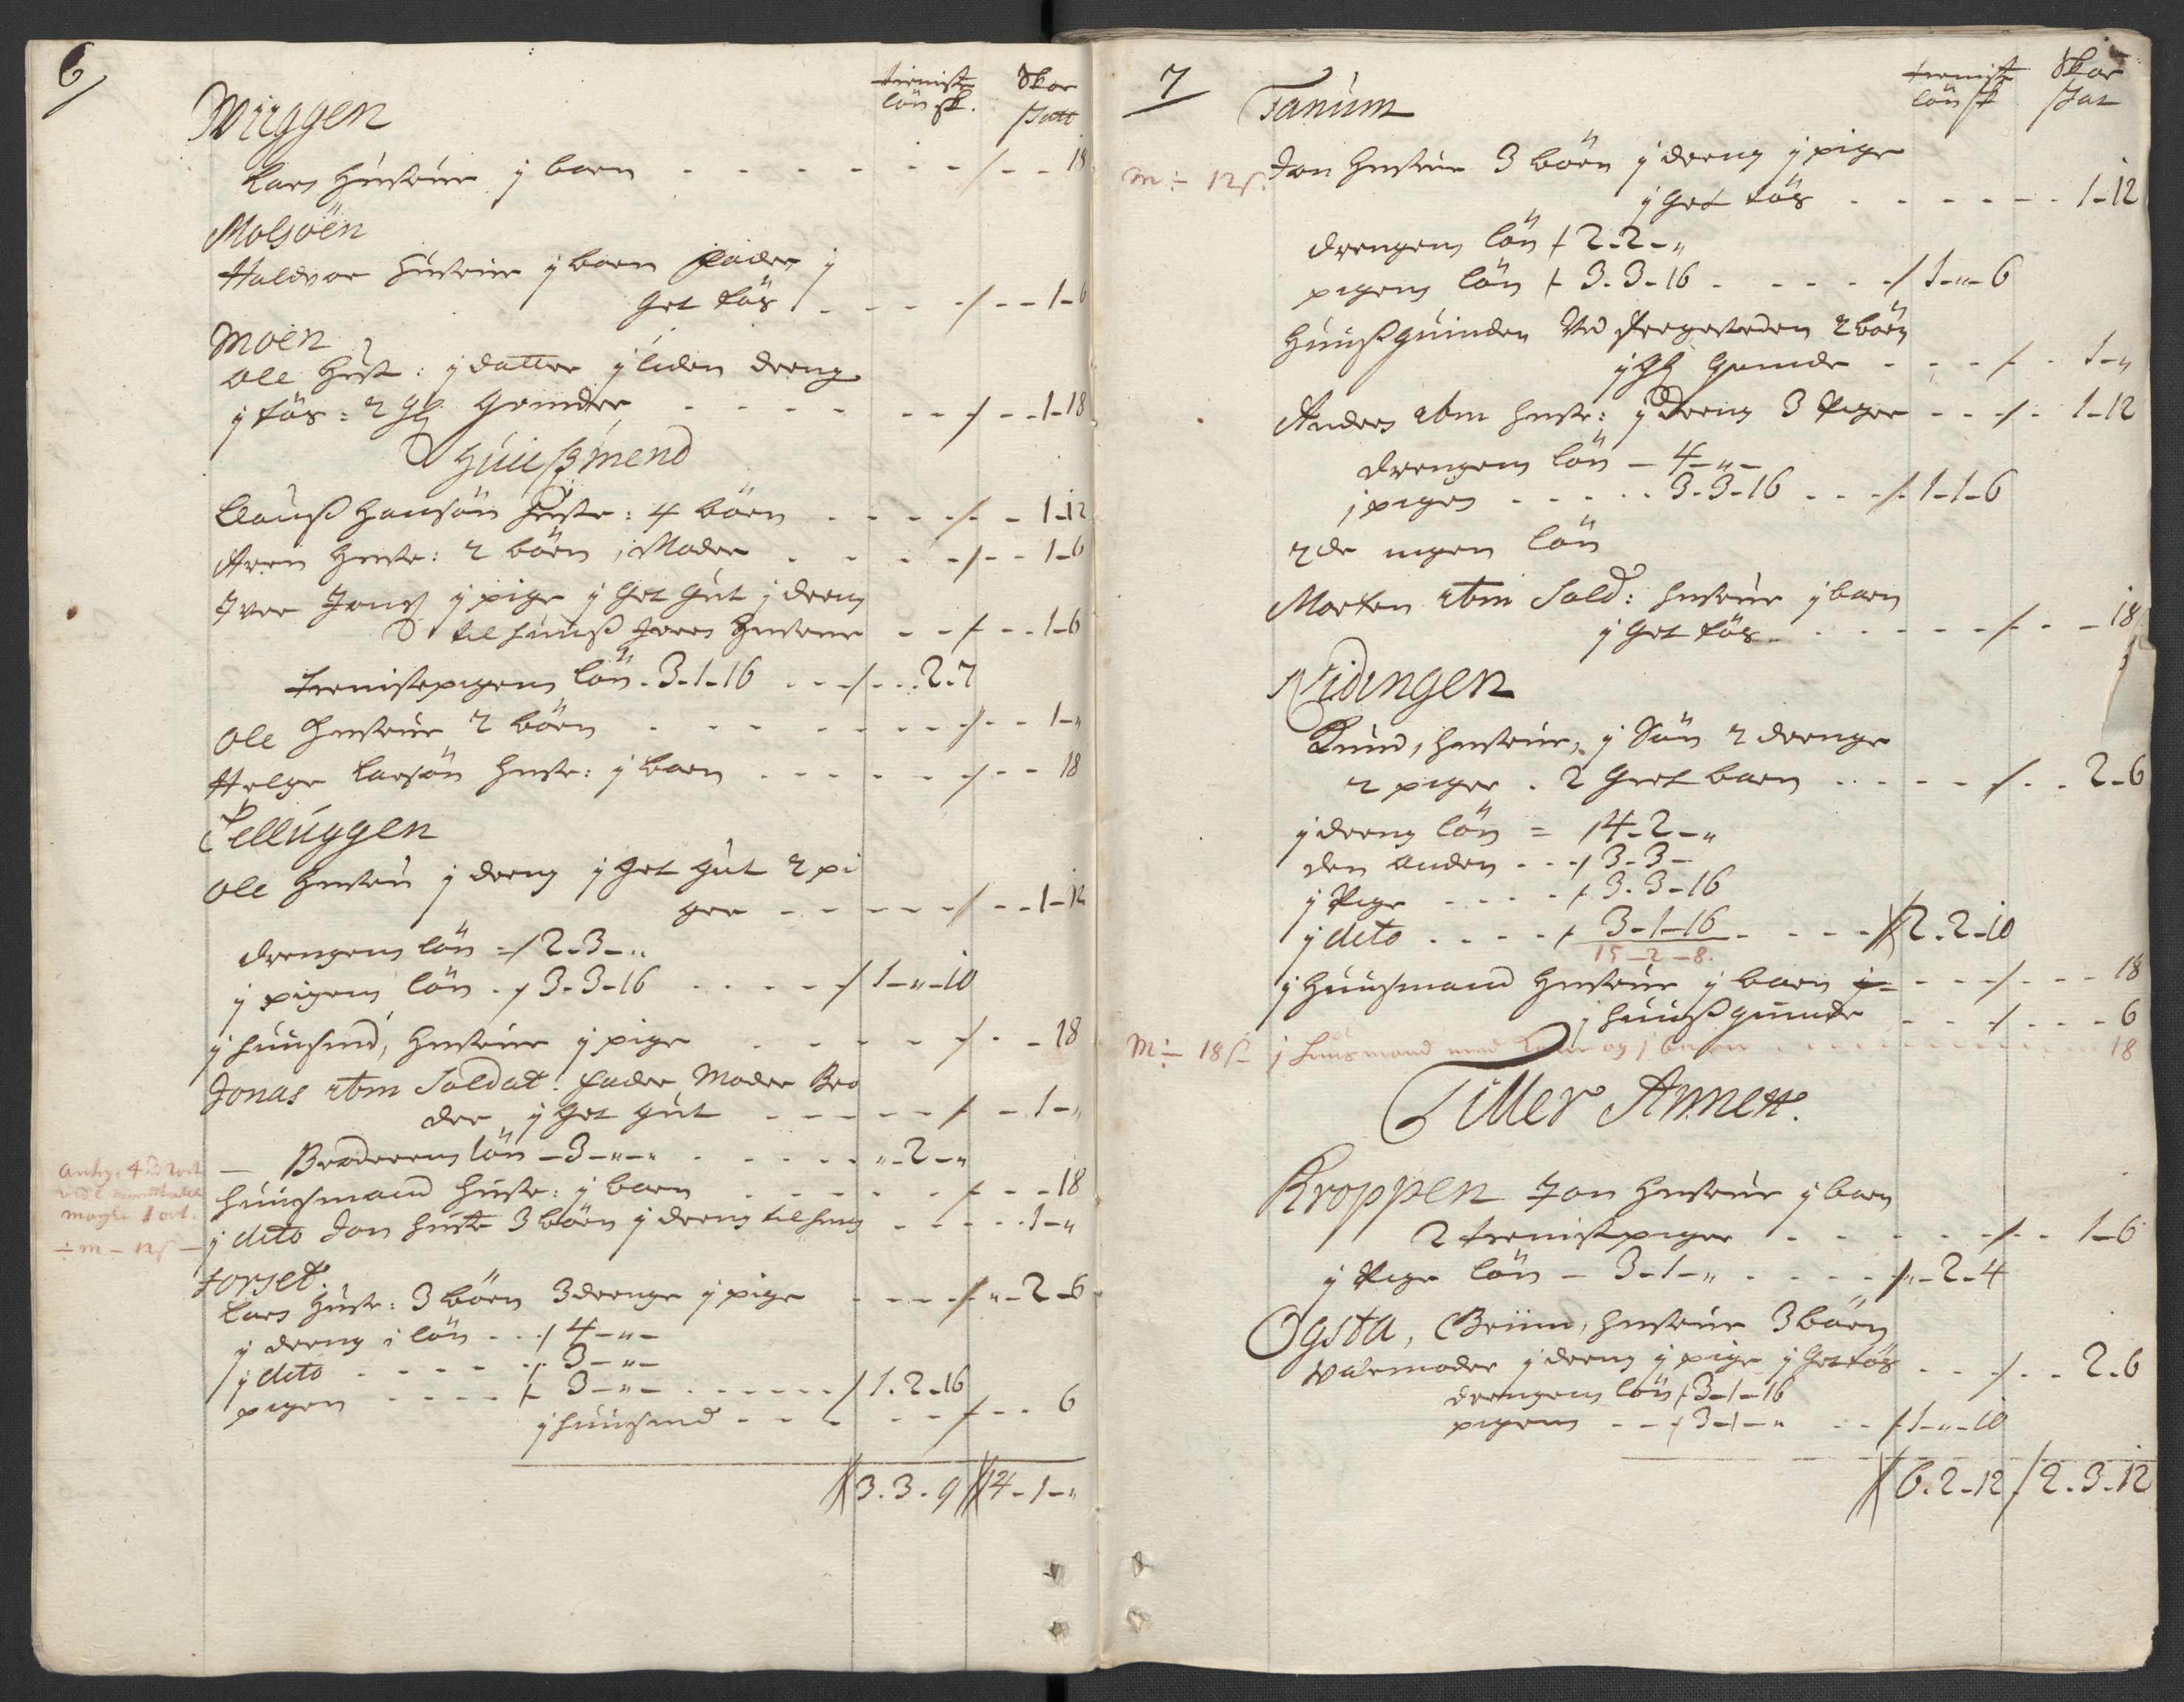 6
tienist Skoe
lön sk. skatt
Wiggen
Lars Hustrue j barn - - - - - - / - - 18
Molsöen
Haldvor hustrue j barn fader j
get tös - - - - / - - 1-6
Moen
Ole Hust: j datter j liden dreng
j tös: 2 gl: Qvinder - - - - - - / - - 1-18
Huusmend
Clauss Hansön Hustr: 4 börn - - - - / - - 1-12
Aren Hustr: 2 börn, j Moder - - - - / - - 1-6
Iver j pige j get gut j dreng
til huuss Hustrue - - / - - 1-6
tienistepigens lön - 3-1-16 - - / - - 2-7
Ole Hustrue 2 börn - - - - - - / - - 1-"
Helge Larsön Hustr: j barn - - - - / - - 18
Selluggen
Ole Hustru j dreng j get gut 2 pi
ger - - - - - / - - 1-12
drengens lön = / 2-3-"
j pigens lön - / 3-3-16 - - - - / 1-"-10
j huusmd, Hustrue j pige - - - - / - - 18
Jonas ibm Soldat. fader Moder Bro
der j get gut - - - - - / - 1-"
Broderens lön - 3-"-" - - - - - "-2-"
Huusmand Hustr: j barn - - - - - / - - 18
j dito Jon Hustr 3 börn j dreng til huus - - - - - 1-"
÷ m - 12 s
Forset.
Lars Hustr: 3 börn 3 drenge j pige - - - - / "-2-6
j dreng i lön - - / 4-"-
j dito - - - - / 3-"-
pigen - - - - / 3-"- - - - - - / 1-2-16
j huusmd - - - - - / - - 6
3-3-9 4-1-"
7
tienist Skoe
lön sk skat
Fanum
m ÷ 12 s.
Jon Hustrue 3 börn j dreng j pige
j get tös - - - - - - - 1-12
drengens lön / 2-2-"
pigens lön / 3-3-16 - - - - - / 1-"-6
Huussquinden Ved 2 börn
j gl quinde - - - / - - 1-"
Anders ibm hustr: j dreng 3 Piger - - - / - 1-12
drengens lön - 4-"-
j piges - - - - - 3-3-16 - - - / 1-1-6
2de ingen lön
Morten ibm Sold: hustrue j barn
j get tös - - - - - - / - - 18
Nidingen
Knud, hustrue, j Sön 2 drenge
2 piger . 2 giet barn - - - - - / - - 2-6
j dreng lön = / 4-2-"
den anden - - / 3-3-
j Pige - - - - / 3-3-16
j dito - - - - / 3-1-16 - - - - 2-2-10
15-2-8.
j Huusmand Hustrue j barn - - - / - - 18
j huussquinde - - - / - - - 6
M ÷ 18 s j huusmand med Kone og j barn - - - - - - - 18
Tiller Annex.
Kroppen Jon Hustrue j barn
2 tienistpiger - - - - - / - - 1-6
j Pige lön - 3-1-" - - - - / "-2-4
Ogsta, Hustrue 3 börn
j dreng j pige j get tös - - - / - - 2-6
drengens lön / 3-1-16
pigens - - / 3-1-" - - / 1-"-10
6-2-12 / 2-3-12